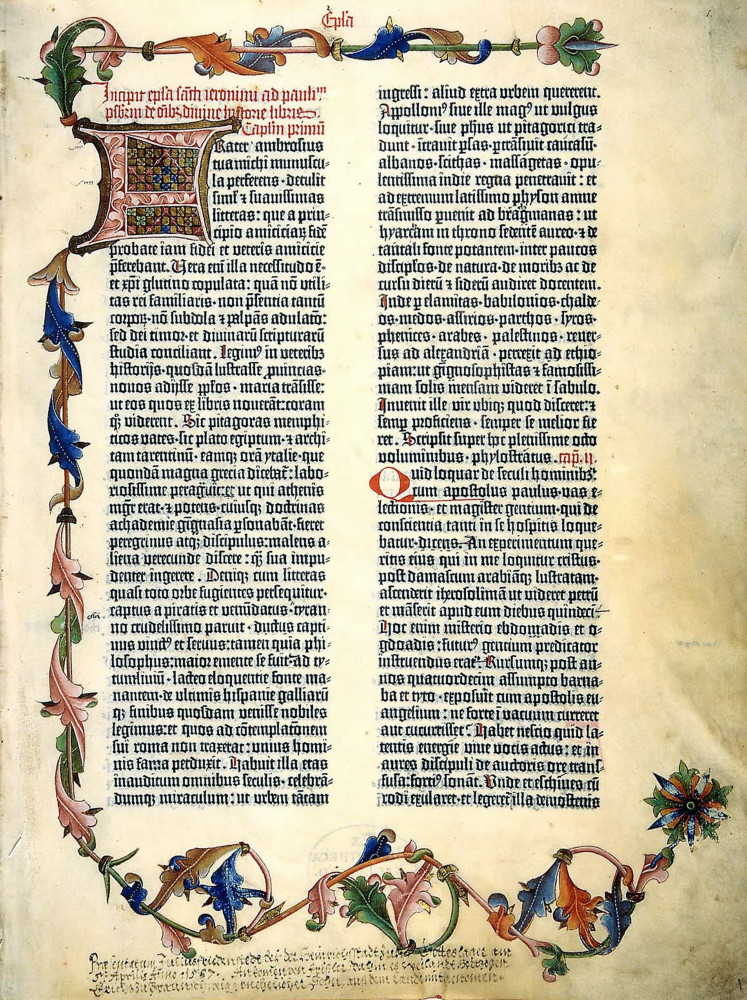 Epl̄a
Incipit epl̄a sācti ieronimi ad paulinū
p̄sbiteꝝ de ōnibꝫ diuine historie libris.
Capl̄m primū
Frater ambrosius
tua michi munuscu-
la perferens · detulit
sim̄l ⁊ suauissimas
litteras: que a prin-
cipio amiciciaꝝ fidē
probate iam fidei et veteris amicicie
p̄ferebant. Uera eni̅ illa necessitudo ē ·
et xp̄i glutino copulata: quam nō vtili-
tas rei familiaris · non p̄sentia tantū
corpoꝝ · nō subdola ⁊ palpās adulatō:
sed dei timor et diuinaꝝ scripturarū
studia conciliant. Legimꝰ in veteribꝫ
historijs · quosdā lustrasse ꝓuincias ·
nouos adijsse pp̄los · maria trāsisse:
ut eos quos ex libris nouerāt: coram
qꝫ viderent. Sic pitagoras memphi-
ticos vates · sic plato egiptum · ⁊ archi-
tam tarentinū · eamqꝫ orā ytalie · que
quondā magna grecia dicebat̄: labo-
riosissime peragrauit: et ut qui athenis
mgr̄ erat · ⁊ potens · cuiusqꝫ doctrinas
achademie gignasia ꝑsonabāt · fieret
peregrinus atqꝫ discipulus: malens a-
liena verecunde discere: qꝫ sua impu-
denter ingerere. Deniqꝫ cum litteras
quasi toto orbe fugientes persequitur ·
captus a piratis et venūdatus · tyran-
no crudelissimo paruit · ductus capti-
uus vinctꝰ et seruus: tamen quia phi-
losophus: maior emente se fuit: ad ty-
tumliuiū · lacteo eloquentie fonte ma-
nantem · de ultimis hispanie galliarū
qꝫ finibus quosdam venisse nobiles
legimus: et quos ad cōtemplatōnem
sui roma non traxerat: unius homi-
nis fama perduxit. Habuit illa etas
inauditum omnibus seculis · celebrā-
dumqꝫ miraculum: ut vrbem tātam
ingressi: aliud extra vrbem quererent.
Appollonꝰ siue ille magꝰ ut vulgus
loquitur · siue ph̄us ut pitagorici tra-
dunt · ītrauit ꝑsas · ꝑtrāsiuit caucasū ·
albanos · scithas · massagetas · opu-
lentissima indie regna penetrauit: et
ad extremum latissimo physon amne
trāsmisso ꝑuenit ad bragmanas: ut
hyarcam in throno sedentē aureo · ⁊ de
tantali fonte potantem · inter paucos
discipl̄os · de natura · de moribꝫ ac de
cursu dierū ⁊ siderū audiret docentem.
Inde ꝑ elamitas · babilonios · chalde-
os · medos · assirios · parthos · syros ·
phenices · arabes · palestinos · reuer-
sus ad alexandriā · perrexit ad ethio-
piam: ut gignosophistas ⁊ famosissi-
mam solis mensam videret ī sabulo.
Inuenit ille vir vbiqꝫ quod disceret: ⁊
semꝑ proficiens · semper se melior fie-
ret. Scripsit super hoc plenissime octo
voluminibus · phylostratus. cap̄. ij.
Quid loquar de seculi hominibꝫ:
cum apostolus paulus · vas e-
lectionis · et magister gentium · qui de
conscientia tanti in se hospitis loque-
batur · dicens. An experimentum que-
ritis eius qui in me loquitur cristus ·
post damascum arabiāqꝫ lustratam ·
ascenderit iherosolimā ut videret petrū
et māserit apud eum diebus quindeci ·
Hoc enim misterio ebdomadis et o-
gdoadis: futurꝰ gentium predicator
instruendus erat. Rursumqꝫ post an-
nos quatuordecim assumpto barna-
ba et tyto · exposuit cum apostolis eu-
angelium: ne forte ī vacuum curreret
aut cucurrisset. Habet nescio quid la-
tentis energie viue vocis actus: et in
aures discipuli de auctoris ore trans-
fusa: fortiꝰ sonat. Unde et eschines cū
rodi exularet · et legeret̄ illa demostenis